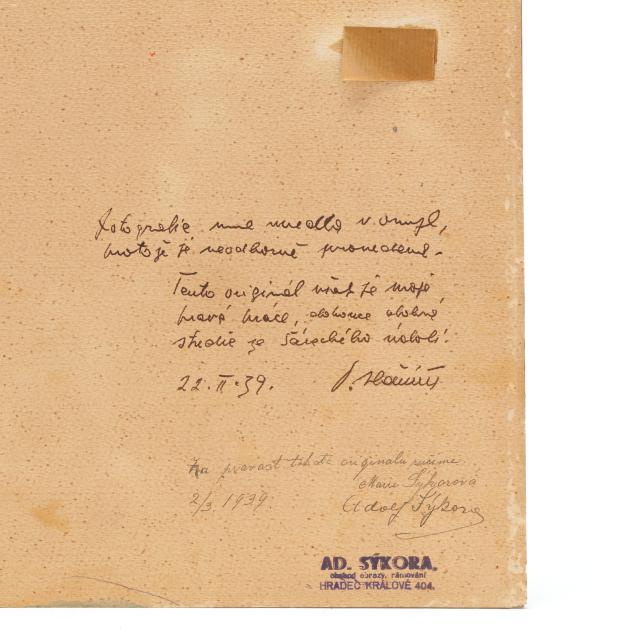 Fotografie mne uvedla v omyl,
protože je neodborně provedená.
Tento originál však je moje
pravá práce, dokonce dobrá
studie ze Šáreckého údolí.
22.II.39.
Za pravost tohoto originalu ručíme.
Marie Sýkorová
2/3. 1939
Adolf Sýkora
AD. SÝKORA,
obchod obrazy, rámování
HRADEC KRÁLOVÉ 404.